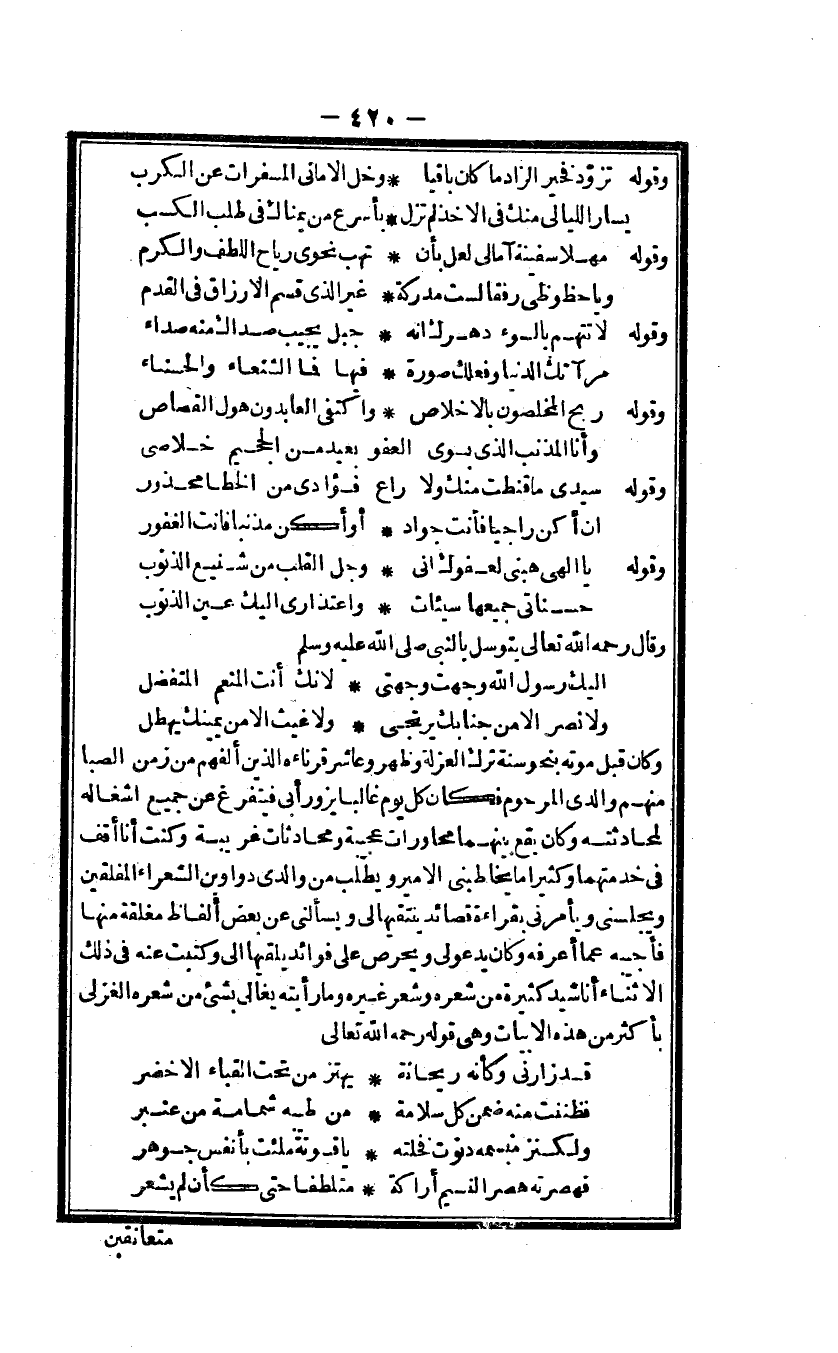 — ٤٢٠ —
وقوله تزوّد فخير الزاد ما كان باقيا * وخل الامانى المسفرات عن الكرب
يسار الليالى منك فى الاخذ لم تزل * بأسرع من يمناك فى طلب الكسب
وقوله مهلا سفينة آمالى لعل بأن * تهب نحوى رياح اللطف والكرم
وياحظوظى رفقا لست مدركة * غير الذى قسم الارزاق فى القدم
وقوله لا تتهم بالسوء دهرك انه * جبل يجيب صداك منه صداء
مرآتك الدنيا وفعلك صورة * فيها فما الشنعاء والحسناء
وقوله ربح المخلصون بالاخلاص * واكتفى العابدون هول القصاص
وأنا المذنب الذى بسوى العفو بعيد من الجحيم خلاصى
وقوله سيدى ما قنطت منك ولا راع فؤادى من الخطا محذور
ان أكن راجيا فأنت جواد * أو أكن مذنبا فانت الغفور
وقوله يا الهى هبنى لعفوك انى * وجل القلب من شنيع الذنوب
حسناتى جميعها سيئات * واعتذارى اليك عين الذنوب
وقال رحمه الله تعالى يتوسل بالنبى صلى الله عليه وسلم
اليك رسول الله وجهت وجهتى * لانك أنت المنعم المتفضل
ولا نصر الا من جنابك يرتجى * ولا غيث الا من يمينك يهطل
وكان قبل موته بنحو سنة ترك العزلة وظهر وعاشر قرناءه الذين ألفهم من زمن الصبا
منهم والدى المرحوم فكان كل يوم غالبا يزور أبى فيتفرغ عن جميع اشغاله
لمحادثته وكان يقع بينهما محاورات عجيبة ومحادثات غريبة وكنت أنا أقف
فى خدمتهما وكثيرا ما يخاطبنى الامير ويطلب من والدى دواوين الشعراء المفلقين
ويجلسنى ويأمرنى بقراءة قصائد ينتقيها لى ويسألنى عن بعض ألفاظ مغلقة منها
فأجيبه عما أعرفه وكان يدعو لى ويحرص على فوائد يلقيها الى وكتبت عنه فى ذلك
الاثناء أناشيد كثيرة من شعره وشعر غيره وما رأيته يغالى بشئ من شعره الغزلى
بأكثر من هذه الابيات وهى قوله رحمه الله تعالى
قد زارنى وكأنه ريحانة * يهتز من تحت القباء الاخضر
فظننت منه ضمن كل سلامة * من طيبه شمامة من عنبر
ولكنز مبسمه دنوت فخلته * ياقوتة ملئت بأنفس جوهر
فهصرته هصر النسيم أراكة * متلطفا حتى كأن لم يشعر
متعانقين